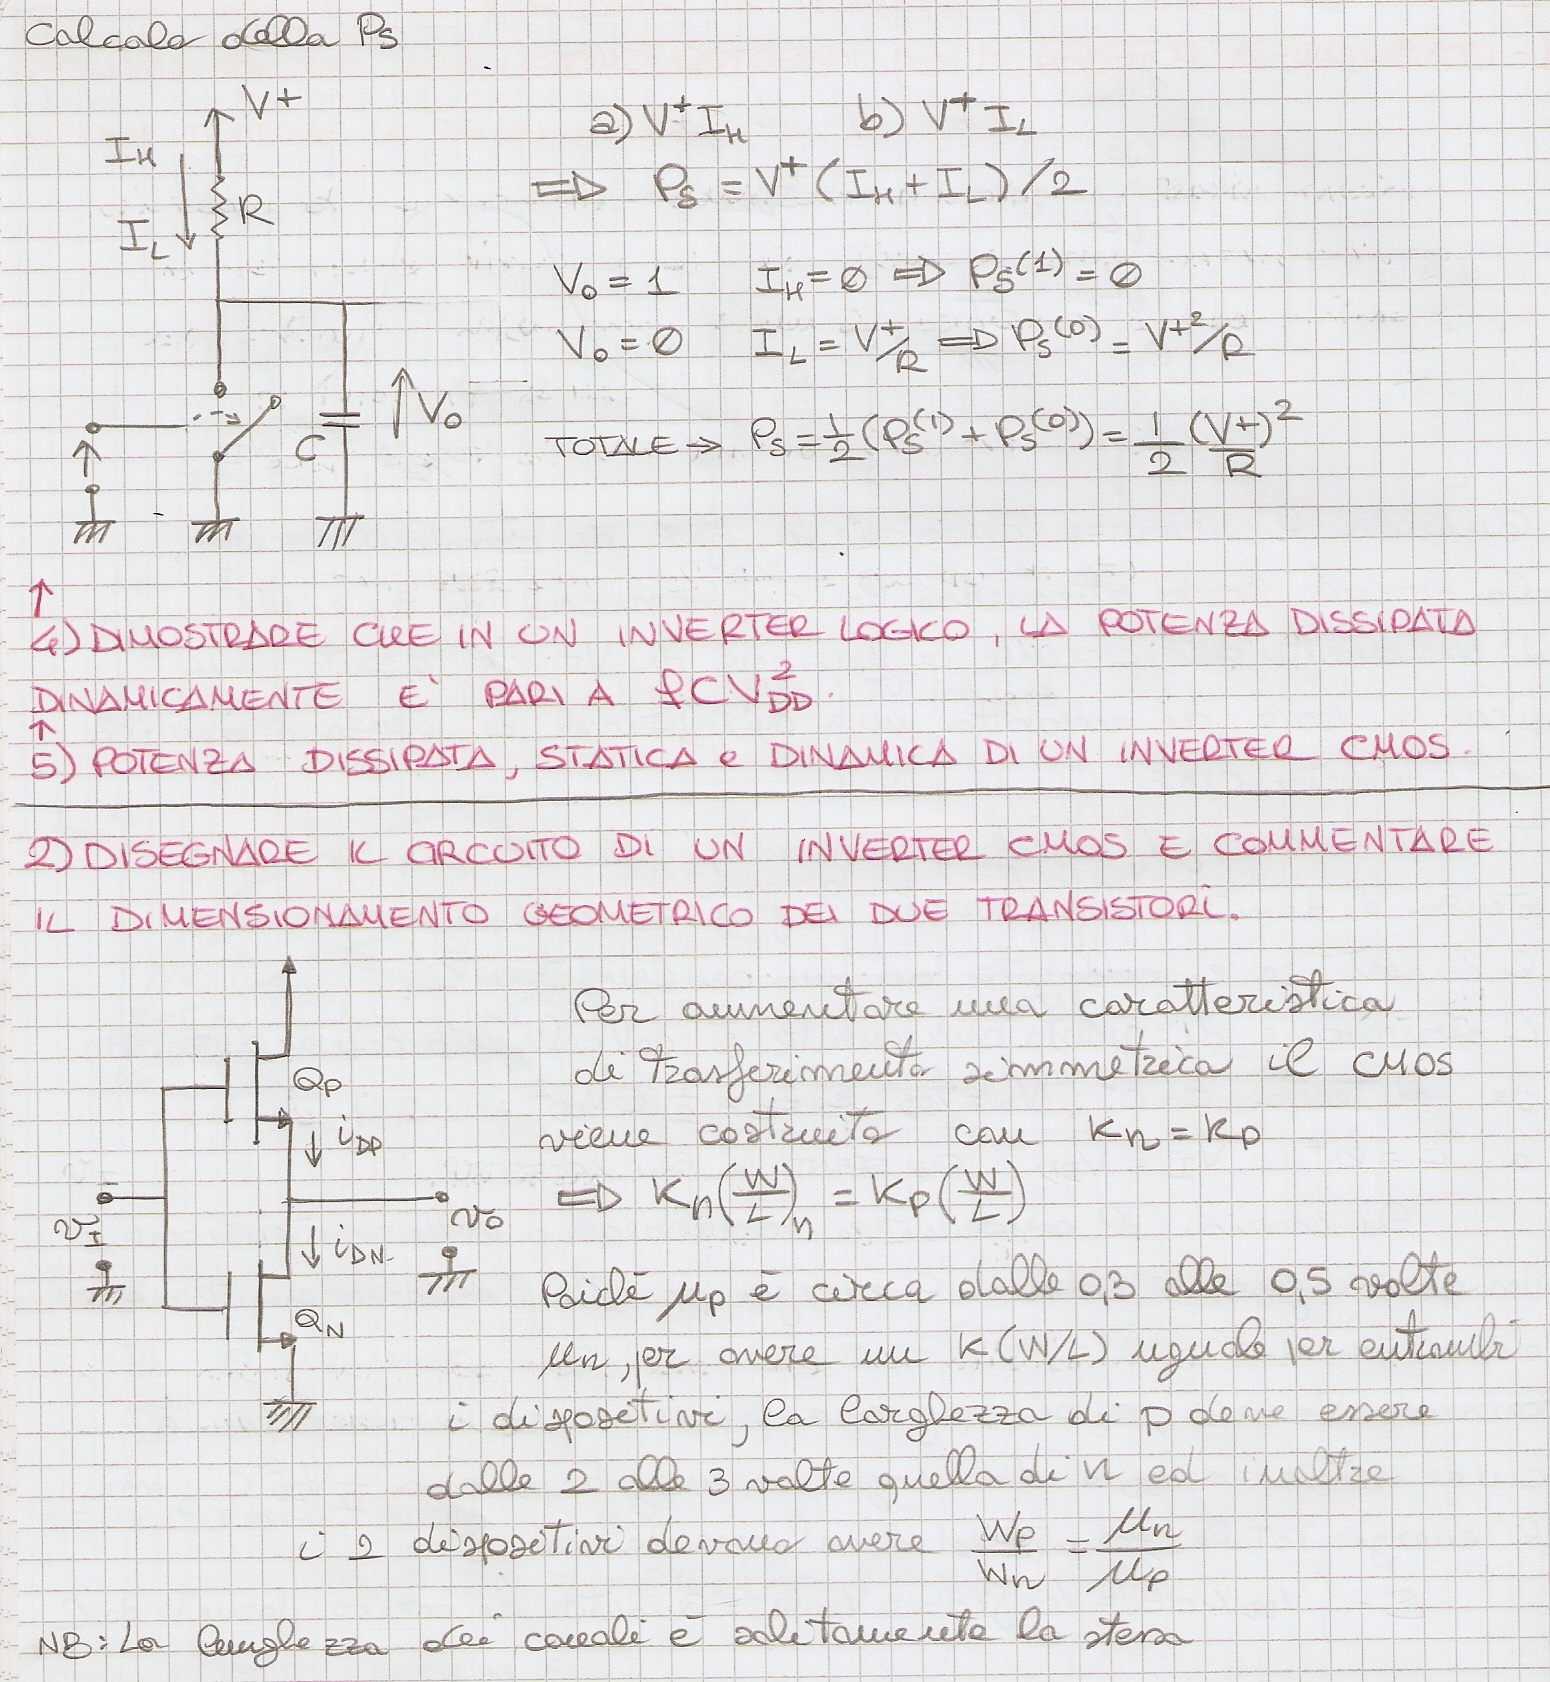 Calcolo della Ps
V+
IH
a) V+ IH b) V+ IL
⇒ Ps = V+ (IH + IL) / 2
R
IL
Vo = 1 IH = Ø ⇒ Ps(1) = Ø
Vo = Ø IL = V+/R ⇒ Ps(0) = V+²/R
Vo
C
TOTALE → Ps = 1/2 (Ps(1) + Ps(0)) = 1/2 (V+)²/R
4) DIMOSTRARE CHE IN UN INVERTER LOGICO, LA POTENZA DISSIPATA
DINAMICAMENTE E' PARI A fCV²DD.
5) POTENZA DISSIPATA, STATICA e DINAMICA DI UN INVERTER CMOS.
2) DISEGNARE IL CIRCUITO DI UN INVERTER CMOS E COMMENTARE
IL DIMENSIONAMENTO GEOMETRICO DEI DUE TRANSISTORI.
Per aumentare una caratteristica
di trasferimento simmetrica il CMOS
QP
iDP
viene costruito con Kn = Kp
⇒ Kn (W/L)n = Kp (W/L)
vI
vo
iDN
QN
Poiché μp è circa dalle 0,3 alle 0,5 volte
μn, per avere un K(W/L) uguale per entrambi
i dispositivi, la larghezza di p deve essere
dalle 2 alle 3 volte quella di n ed inoltre
i 2 dispositivi devono avere Wp/Wn = μn/μp
NB: La lunghezza dei canali è solitamente la stessa